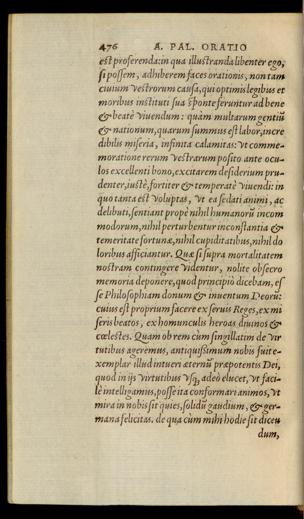 476 A. PAL. ORATIO
est proferenda: in qua illustranda libenter ego,
si possem, adhiberem faces orationis, non tam
ciuium vestrorum causa, qui optimis legibus et
moribus instituti sua sponte feruntur ad bene
& beatè viuendum: quàm multarum gentiũ
& nationum, quarum summus est labor, incre
dibilis miseria, infinita calamitas: vt comme-
moratione rerum vestrarum posito ante ocu-
los excellenti bono, excitarem desiderium pru-
denter, iustè, fortiter & temperatè viuendi: in
quo tanta est voluptas, vt ea sedati animi, ac
delibuti, sentiant propè nihil humanorũ incom
modorum, nihil perturbentur inconstantia &
temeritate fortunæ, nihil cupiditatibus, nihil do
loribus afficiantur. Quæ si supra mortalitatem
nostram contingere videntur, nolite obsecro
memoria deponere, quod principiò dicebam, es
se Philosophiam donum & inuentum Deorũ:
cuius est proprium facere ex seruis Reges, ex mi
seris beatos, ex homunculis heroas diuinos &
cœlestes. Quam ob rem cùm singillatim de vir
tutibus ageremus, antiquissimum nobis fuit e-
xemplar illud intueri æternũ præpotentis Dei,
quod in ijs virtutibus vsq; adeò elucet, vt faci-
lè intelligamus, posse ita conformari animos, vt
mira in nobis sit quies, solidũ gaudium, & ger-
mana felicitas. de qua cùm mihi hodie sit dicen
dum,